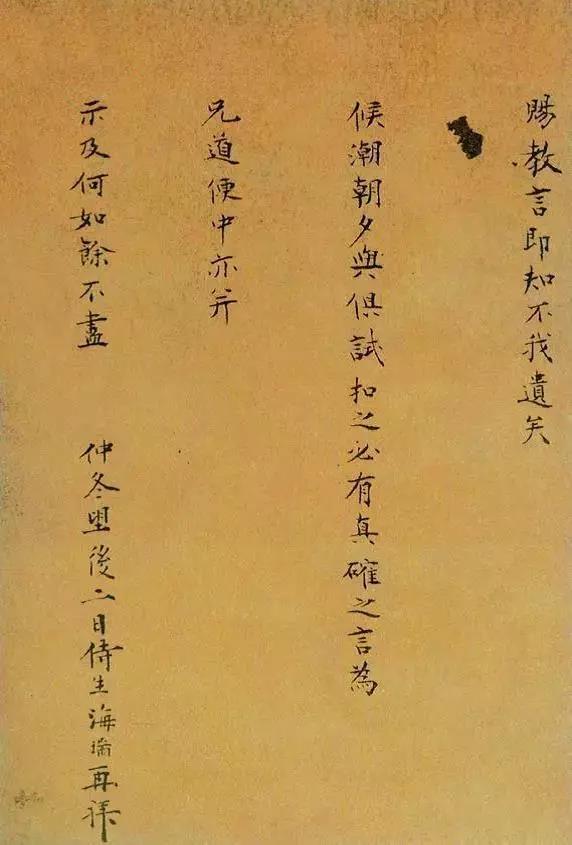 賜教言即知不我遺矣
候潮朝夕與俱試扣之必有真確之言為
兄道便中亦并
示及何如餘不盡　仲冬朢後二日侍生海瑞再拜